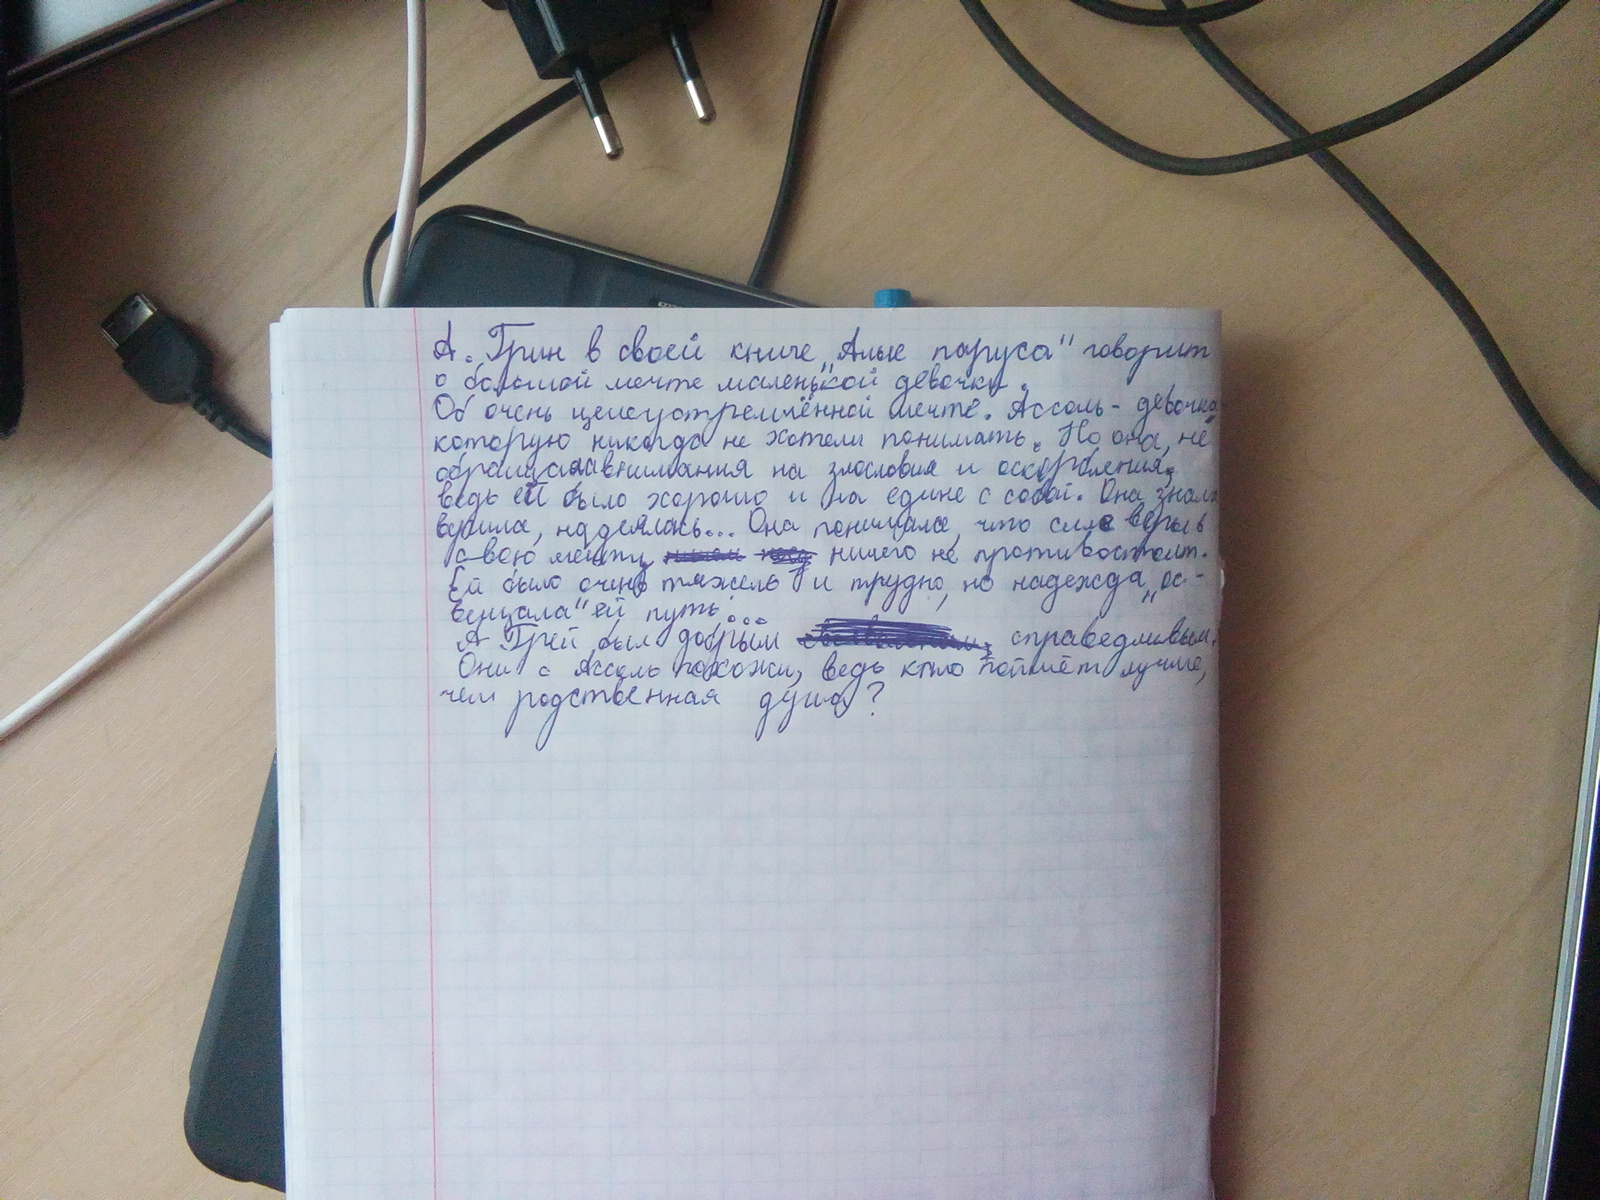 А. Грин в своей книге „Алые паруса" говорит
о большой мечте маленькой девочки.
Об очень целеустремлённой мечте. Ассоль - девочка
которую никогда не хотели понимать. Но она, не
обращала внимания на злословия и оскорбления,
ведь ей было хорошо и на едине с собой. Она знала
верила, надеялась... Она понимала, что силе веры в
свою мечту ничего не противостоит.
Ей было очень тяжело и трудно, но надежда „ос-
вещала" ей путь...
А Грей был добрым справедливым.
Они с Ассоль похожи, ведь кто поймёт лучше,
чем родственная душа?